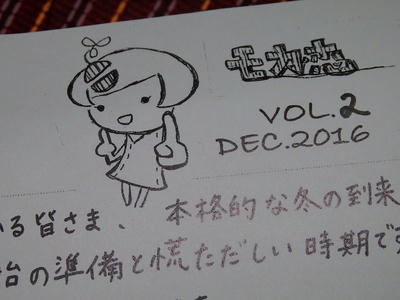 VOL.2
DEC.2016
いる皆さま、 本格的な冬の到来
始の準備と慌ただしい時期です